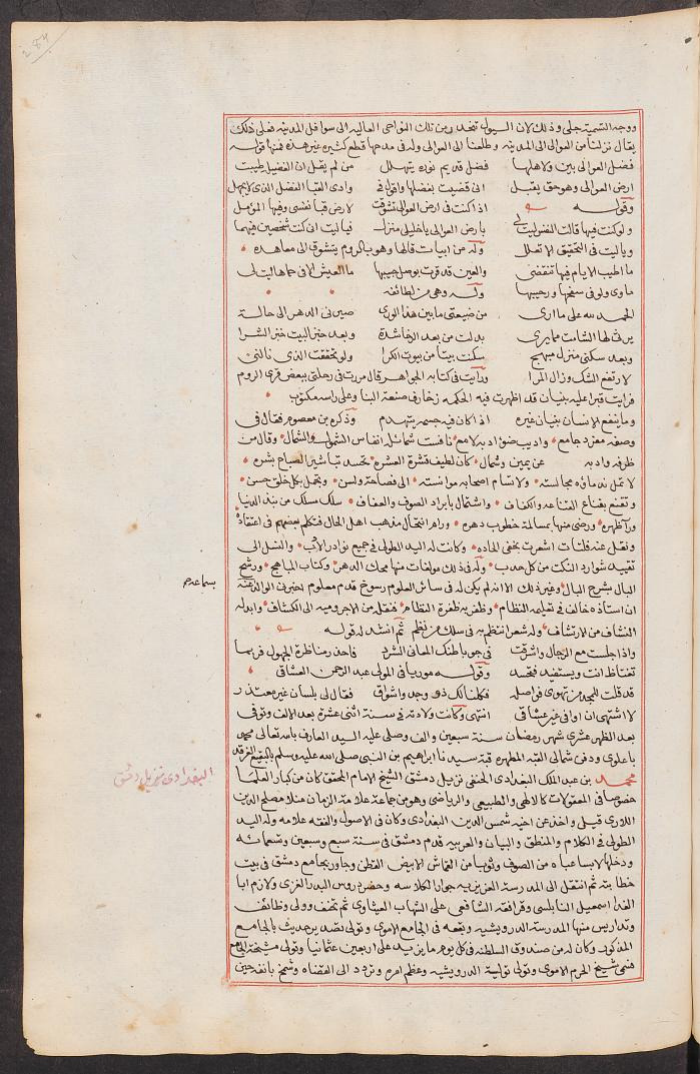 284
ووجه التسمية جلي وذلك لان السيول تنحدر من تلك النواحي العالية الى سوافل المدينة فعلى ذلك
يقال نزلنا من العوالى الى المدينه وطلعنا الى العوالى وله فى مدحها قطع كثيره غير هذه فمنها قوله
فضل العوالى بين ولاهلها فضل قديم نوره يتهلل من لم يقل ان الفضيل طيبت
ارض العوالى وهو حق يقبل انى قضيت بفضلها واقول فى وادى القبا الفضل الذى لا يجهل
وقوله اذا كنت فى ارض العوالى تشوقت لارض قبا نفسى وفيها المؤمل
ولو كنت فيها قالت النفس ليت لى بارض العوالى يا خليلى منزل فياليت انى كنت شخصين فيهما
وياليت فى التحقيق الا تعلل وله من ابيات قالها وهو بالروم يتشوق الى معاهده
ما اطيب الايام فيها تنقضى والعين قد قرت بوصل حبيبها ما العيش الا فى حماها ليت لى
ماوى ولو فى سفحها ورحيبها وله وهى من لطائفه
الحمد لله على ما ارى من ضيعتى ما بين هذا الورى صيرنى الدهر الى حالة
يرثى لها الشامت مما يرى بدلت من بعد الرخا شدة وبعد خبز البيت خبز الشرا
وبعد سكنى منزل مبهج سكنت بيتا من بيوت الكرا ولو تحققت الذى نالنى
لارتفع الشك وزال المرا ورايت فى كتابه الجواهر قال مررت فى رحلتى ببعض قرى الروم
فرايت قبرا عليه بنيان قد اظهرت فيه الحكمه زخارف صنعة البنا وعلى راسه مكتوب
وما ينفع الانسان بنيان غيره اذا كان فيه جسمه يتهدم وذكره بن معصوم فقال فى
وصفه مفرد جامع واديب ضوء ادبه لامع نافست شمائله انفاس الشمول والشمال وقال من
ظرفه وادبه عن يمين وشمال كان لطيف قشرة العشره تحسد تباشير الصباح بشره
لا تمل ندماؤه مجالسته ولا تسام اصحابه موانسته الى فصاحة ولسن وتجمل بكل خلق حسن
وتقنع بقناع القناعه والكفاف واشتمال بابراد الصون والعفاف سلك مسلك من نبذ الدنيا
وراء ظهره ورضى منها بمسالمة خطوب دهره وراه انتحال مذهب اهل الحال فتكلم بعضهم فى اعتقاده
ونقل عنه فلتات اشعرت بخفى الحاده وكانت له اليد الطولى فى جميع نوادر الادب والنسل الى
تقييد شوارد النكت من كل حدب وله فى ذلك مولفات منها محك الدهر وكتاب المباهج ورشح
البال بشرح البال وغير ذلك الا انه لم يكن له فى سائر العلوم رسوخ قدم معلوم اخبرنى الوالد عنه
بسماعه
ان استاذه خالف فى تعليمه النظام وظفر به طفرة النظام فنقل من الاجروميه الى الكشاف وابدله
النشاف من الارتشاف وله شعر انتظم به فى سلك من نظم ثم انشد له قوله
واذا جلست مع الرجال واشرقت فى جو باطنك المعانى الشرد فاحذر مناظرة الجهول فربما
تغتاظ انت ويستفيد فقسه وقوله موريا فى المولى عبد الرحمن العشاقى
قد قلت للمجد من تهوى فواصله فكلنا لك ذو وجد واشواق فقال لى بلسان غير معتذر
لا اشتهى ان اوافى غير عشاقى انتهى وكانت ولادته فى سنة اثنى عشرة بعد الالف وتوفى
بعد الظهر عشرى شهر رمضان سنة سبعين والف وصلى عليه السيد العارف بالله تعالى محمد
باعلوى ودفن شمالى القبه المطهره قبة سيدنا ابراهيم بن النبى صلى الله عليه وسلم بالبقيع الغرقد
محمد بن عبد الملك البغدادى الحنفى نزيل دمشق الشيخ الامام المحقق كان من كبار العلما
البغدادى نزيل دمشق
خصوصا فى المعقولات كالالهى والطبيعى والرياضى وهو من جماعة علامة الزمان منلا مصلح الدين
اللارى قيل واخذ عن اخيه شمس الدين البغدادى وكان فى الاصول والفقه علامه وله اليد
الطولى فى الكلام والمنطق والبيان والعربيه قدم دمشق فى سنة سبع وسبعين وتسعمائه
ودخلها لابسا عباه من الصوف وثوبا من القماش الابيض القطن وجاور بجامع دمشق فى بيت
خطابته ثم انتقل الى المدرسة العزيزيه جوار الكلاسه وحضر دروس البدر الغزى ولازم ابا
الفدا اسمعيل النابلسى وقرا فقه الشافعى على الشهاب العيثاوى ثم تحنف وولى وظائف
وتداريس منها المدرسة الدرويشيه وبقعه فى الجامع الاموى وتولى تصدير حديث بالجامع
المذكور وكان له من صندوق السلطنه فى كل يوم ما يزيد على اربعين عثمانيا وتولى مشيخة الجامع
فسمى شيخ الحرم الاموى وتولى تولية الدرويشيه وعظم امره وتردد الى القضاه وشمخ بانفه حين